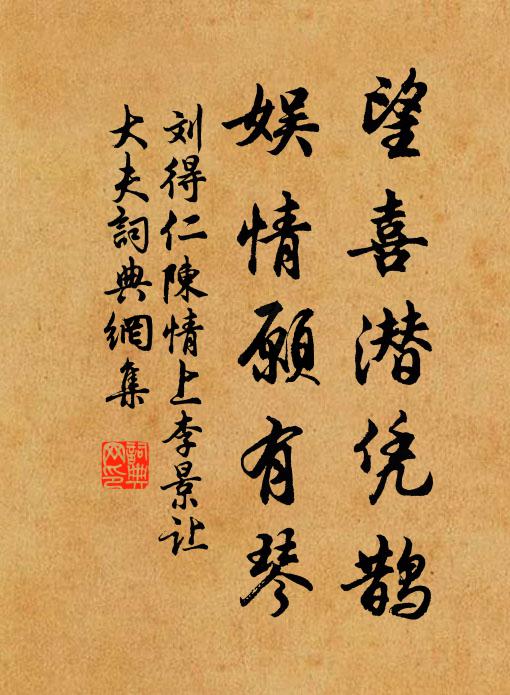 望喜潜凭鹊
娱情愿有琴
刘得仁陳情上李景让
大夫詞典網集
詞典网印